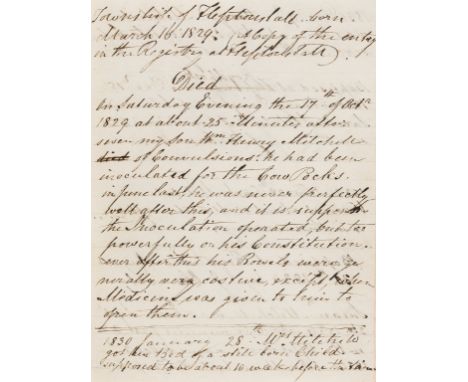 Township of Heptonstall born
March 16. 1829. (A Copy of the entry
in the Register at Heptonstall)
Died
On Saturday Evening the 17th of Octr
1829 at about 25 Minutes after
seven my Son Wm Henry Mitchell
died of Convulsions: he had been
inoculated for the Cow Pocks
in June last, he was never perfectly
well after this, and it is supposed
the Inoculation oporated, but too
powerfully on his Constitution.
ever after this his Bowels were ge
nerally very costive, except, when
Medicine was given to him to
open them.
1830 January 28th Mrs Mitchell
got her Bed of a still born Child
supposed to be about 16 weeks before the time